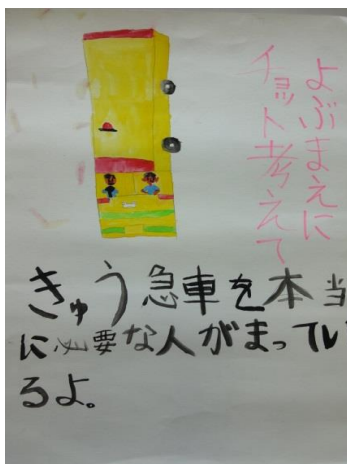 よぶまえに
チョット考えて
きゅう急車を本当
に必要な人がまってい
るよ。